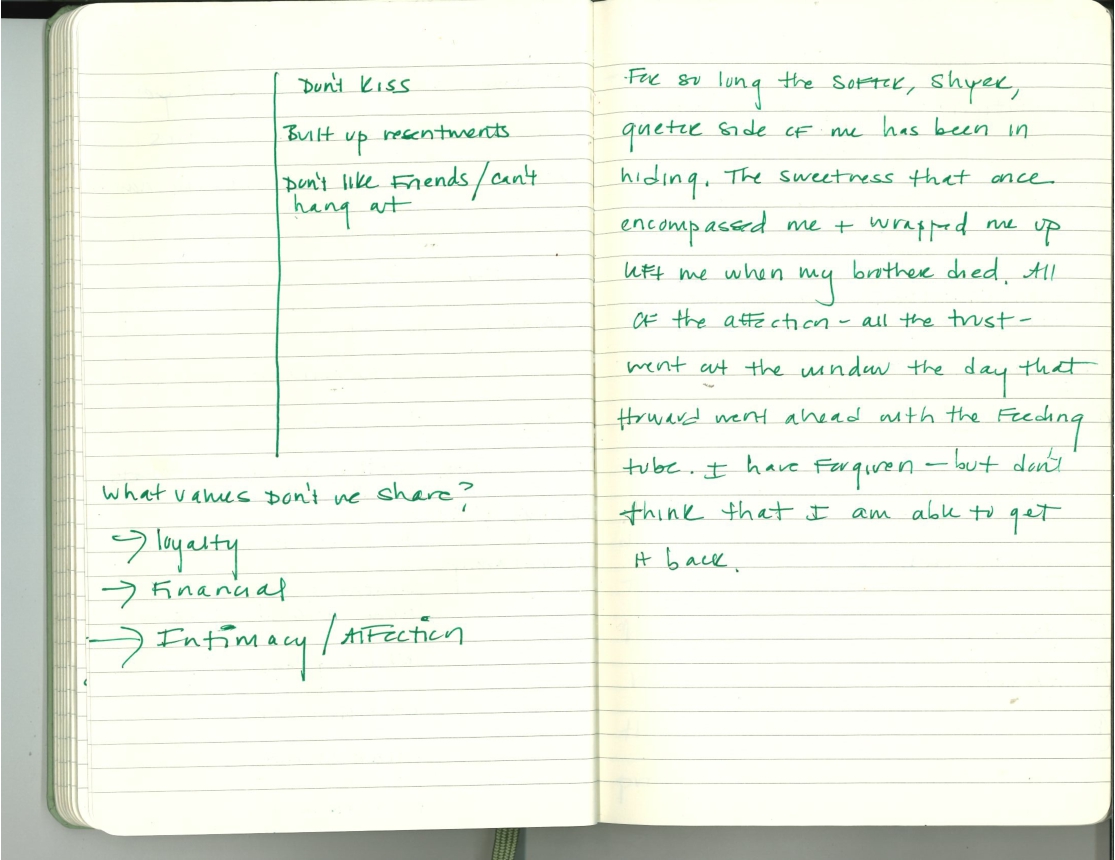 Don't Kiss
Built up resentments
Don't like Friends/can't
hang out
What values Don't we share?
→ loyalty
→ Financial
→ Intimacy / Affection
For so long the softer, shyer,
quieter side of me has been in
hiding. The sweetness that once
encompassed me + wrapped me up
left me when my brother died. All
of the affection - all the trust -
went out the window the day that
Howard went ahead with the Feeding
tube. I have Forgiven - but don't
think that I am able to get
it back.